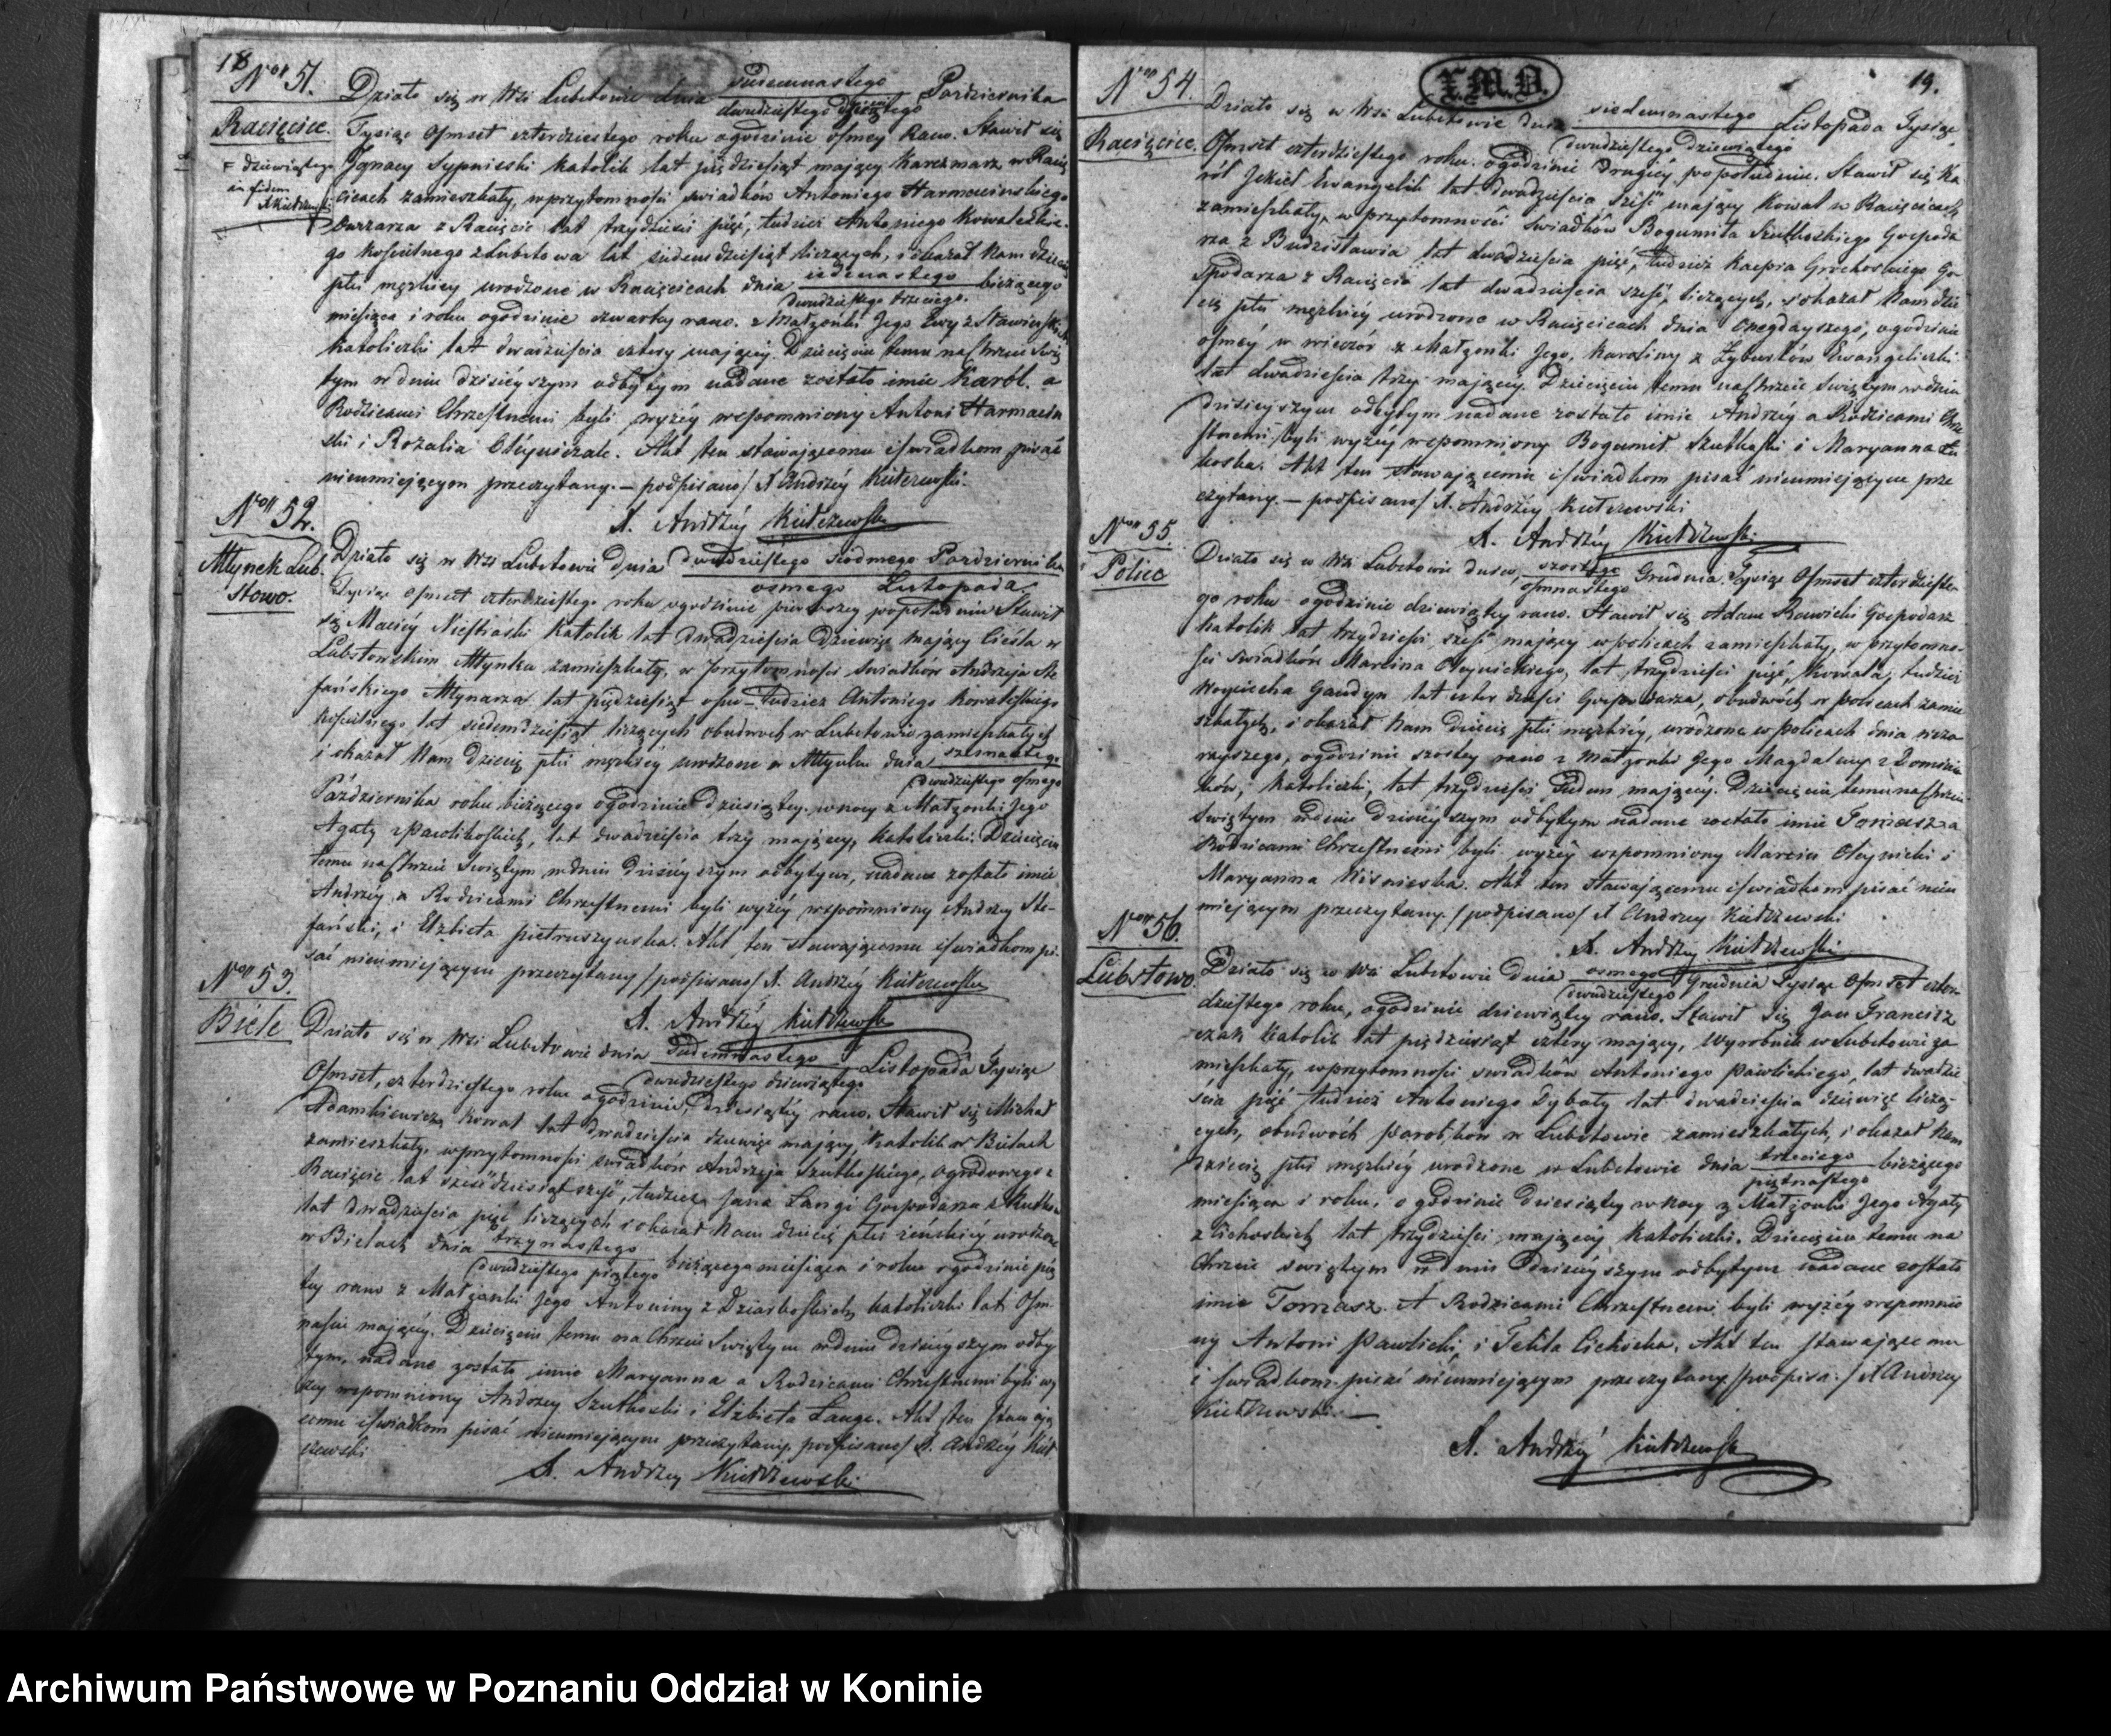 18
Non 51.
Racięcice.
F dziewiątego
in fidem
AKiełczewski
Działo się w Wsi Lubstowie dnia siedemnastego Pazdziernika
dwudziestego
Tysiąc Ośmset czterdziestego roku ogodzinie osmey Rano. Stawił się
Ignacy Sypnieski Katolik lat pięćdziesiąt mający Karczmarz w Racię
cicach zamieszkały, wprzytomności świadków Antoniego Harmacinskiego
Owczarza z Racięcic lat trzydzieści pięć, tudzież Antoniego Kowaleskie
go Kościelnego z Lubstowa lat siedemdziesiąt liczących, i okazał Nam dziecię
płci męzkiey urodzone w Racięcicach dnia iedenastego bieżącego
dwudziestego trzeciego.
miesiąca i roku ogodzinie czwartey rano. z Małżonki Jego Ewy z Stawieńskich
Katoliczki lat dwadzieścia cztery maiącey. Dziecięciu temu na Chrzcie Świę
tym w dniu dzisieyszym odbytym nadane zostało imie Karól. a
Rodzicami Chrzestnemi byli wyżéy wspomniony Antoni Harmaciń
ski i Rozalia Oleyniczak. Akt ten stawaiącemu i świadkom pisać
nieumiejącym przeczytany. — podpisano/ X Andrzéy Kiełczewski.
X. Andrzéy Kiełczewski
Non 52.
Młynek Lub
stowo.
Działo się w Wsi Lubstowie Dnia dwudziestego siódmego Pazdziernika
osmego Listopada
Tysiąc Ośmset czterdziestego roku ogodzinie pierwszey popołudniu Stawił
się Maciéy Niestraski Katolik lat Dwadzieścia Dziewięć mający Cieśla w
Lubstowskim Młynku zamieszkały, w Przytomności świadków Andrzeja Ste
fańskiego Młynarza lat pięćdziesiąt osm – tudzież Antoniego Kowaleskiego
Kościelnego, lat siedemdziesiąt liczących obudwoch w Lubstowie zamieszkałych
i okazał Nam Dziecię płci męzkiéy urodzone w Młynku dnia szesnastego
dwudziestego osmego
Października roku bieżącego ogodzinie Dziesiątey. wnocy z Małżonki Jego
Agaty z Pawlikoskich, lat dwadzieścia trzy maiącey, Katoliczki. Dziecięciu
temu na Chrzcie Świętym wdniu Dzisiéyszym odbytym, nadane zostało imie
Andrzéy. a Rodzicami Chrzestnemi byli wyżéy wspomniony Andrzey Ste-
fański, i Elżbieta pietruszynska. Akt ten stawającemu i świadkom pi-
sać nieumiejącym przeczytany /podpisano/ X. Andrzéy Kiełczewski
X. Andrzéy Kiełczewski
Non 53.
Biele
Działo się w Wsi Lubstowie dnia Siedemnastego Listopada Tysiąc
dwudziestego dziewiątego
Ośmset, czterdziestego roku ogodzinie, dziesiątéy rano. Stawił się Michał
Adamkiewicz, Kowal lat Dwadzieścia dziewięć maiący, Katolik w Bielach
zamieszkały, wprzytomności świadków Andrzeja Szutkoskiego, ogrodowego z
Racięcic lat sześćdziesiąt sześć, tudzież Jana Langi Gospodarza z
lat dwadzieścia pięć liczących i okazał Nam dziecię płci żeńskiéy urodzone
w Bielach dnia trzynastego bieżącego miesiąca i roku ogodzinie pią
dwudziestego piątego
téy rano z Małżonki Jego Antoniny z Dziarkoskich, katoliczki lat Osm
naście maiącéy. Dziecięciu temu na Chrzcie Świętym wdniu dzisiéyszym odby
tym, nadane zostało imie Maryanna a Rodzicami Chrzestnemi byli wy
żéy wspomniony Andrzey Szutkoski i Elżbieta Lange. Akt ten stawają
cemu i świadkom pisać nieumiejącym przeczytany, podpisano/ X. Andrzéy Kieł
czewski
X. Andrzey Kiełczewski
19.
Non 54.
Racięcice.
Działo się w Wsi Lubstowie dnia siedemnastego Listopada Tysiąc
dwudziestego dziewiątego
Ośmset czterdziestego roku. ogodzinie drugiéy popołudniu. Stawił się Ka
ról Jekiel Ewangelik lat dwadzieścia sześć maiący Kowal w Racięcicach
zamieszkały, w przytomności świadków Bogumiła Szutkoskiego Gospoda
rza z Budzisławia lat dwadzieścia pięć, tudzież Kacpra Grochoskiego Go-
spodarza z Racięcic lat dwadzieścia sześć, liczących, i okazał Nam dzie
cię płci męzkiéy urodzone w Racięcicach dnia Onegdayszego, ogodzinie
osméy w wieczór z Małżonki Jego, Karoliny z Zybertów Ewangeliczki
lat dwadzieścia trzy maiącey. Dziecięciu temu na Chrzcie Świętym w dniu
dzisieyszym odbytym nadane zostało imie Andrzéy a Rodzicami Chrze
stnemi, byli wyżéy wspomniony Bogumił Szutkoski i Maryanna
koska. Akt ten stawającemu i świadkom pisać nieumiejącym prze
czytany. — podpisano/ X. Andrzéy Kiełczewski
X. Andrzéy Kiełczewski
Non 55.
Police
Działo się w Wsi Lubstowie dnia, szostego Grudnia, Tysiąc Ośmset czterdzieste-
osmnastego
go roku ogodzinie dziewiątéy rano. Stawił się Adam Rawicki Gospodarz
Katolik lat trzydzieści sześć mający wpolicach zamieszkały, w przytomno-
ści świadków Marcina Oleynickiego, lat trzydzieści pięć, Kowala, tudzież
Woyciecha Gawdyn lat czterdzieści Gospodarza, obudwóch w policach zamie
szkałych, i okazał Nam Dziecię płci męzkiéy, urodzone wpolicach dnia wczo
rayszego, ogodzinie szostey rano z małżonki Jego Magdaleny z Domini
ków, Katoliczki, lat trzydzieści siedem maiącéy. Dziecięciu temu na Chrzcie
świętym wdniu Dzisiéyszym odbytym nadane zostało imie Tomasz a
Rodzicami Chrzestnemi byli wyżéy wspomniony Marcin Oleynicki i
Maryanna Wisnieska. Akt ten stawającemu i świadkom pisać nieu
miejącym przeczytany /podpisano/ X Andrzey Kiełczewski
X. Andrzey Kiełczewski
Non 56.
Lubstowo.
Działo się w Wsi Lubstowie Dnia osmego Grudnia Tysiąc Ośmset czter
dwudziestego
dziestego roku, ogodzinie dziewiątéy rano. Stawił się Jan Francisz
czak Katolik lat pięćdziesiąt cztery maiący, Wyrobnik w Lubstowie za
mieszkały, wprzytomności świadków Antoniego Pawlickiego, lat dwadzie
ścia pięć, tudzież Antoniego Dybały lat dwadzieścia dziewięć liczą-
cych, obudwóch parobków w Lubstowie zamieszkałych, i okazał Nam
dziecię płci męzkiéy urodzone w Lubstowie dnia trzeciego bieżącego
piętnastego
miesiąca i roku, o godzinie dziesiątéy wnocy z Małżonki Jego Agaty
z Cichoskich lat trzydzieści maiącéy Katoliczki. Dziecięciu temu na
Chrzcie świętym w dniu Dzisiéyszym odbytym nadane zostało
imie Tomasz. A Rodzicami Chrzestnemi byli wyżéy wspomnio
ny Antoni Pawlicki, i Tekla Cichocka. Akt ten stawającemu
i świadkom pisać nieumiejącym przeczytany /podpisa:/ X Andrzey
Kiełczewski. —
X. Andrzéy Kiełczewski
Archiwum Państwowe w Poznaniu Oddział w Koninie